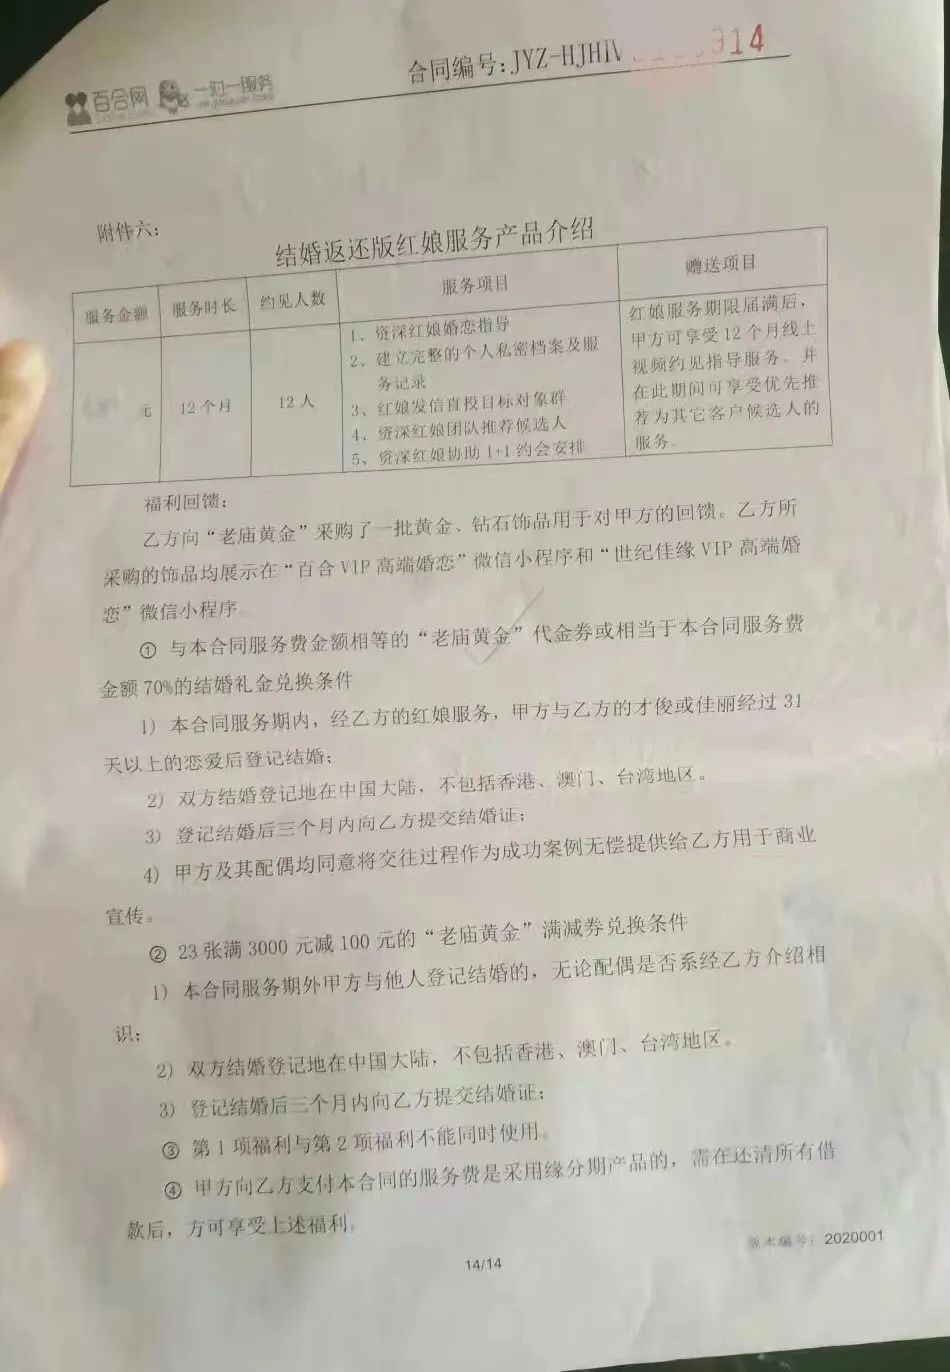 百合网 一对一服务
合同编号:JYZ-HJHIV 914
附件六:
结婚返还版红娘服务产品介绍
服务金额 服务时长 约见人数 服务项目 赠送项目
元 12个月 12人
1、资深红娘婚恋指导
2、建立完整的个人私密档案及服
务记录
3、红娘发信直投目标对象群
4、资深红娘团队推荐候选人
5、资深红娘协助1+1约会安排
红娘服务期限届满后,
甲方可享受12个月线上
视频约见指导服务。并
在此期间可享受优先推
荐为其它客户候选人的
服务。
福利回馈:
乙方向“老庙黄金”采购了一批黄金、钻石饰品用于对甲方的回馈。乙方所
采购的饰品均展示在“百合VIP高端婚恋”微信小程序和“世纪佳缘VIP高端婚
恋”微信小程序
① 与本合同服务费金额相等的“老庙黄金”代金券或相当于本合同服务费
金额70%的结婚礼金兑换条件
1) 本合同服务期内,经乙方的红娘服务,甲方与乙方的才俊或佳丽经过31
天以上的恋爱后登记结婚;
2) 双方结婚登记地在中国大陆,不包括香港、澳门、台湾地区。
3) 登记结婚后三个月内向乙方提交结婚证;
4) 甲方及其配偶均同意将交往过程作为成功案例无偿提供给乙方用于商业
宣传。
② 23张满3000元减100元的“老庙黄金”满减券兑换条件
1) 本合同服务期外甲方与他人登记结婚的,无论配偶是否系经乙方介绍相
识;
2) 双方结婚登记地在中国大陆,不包括香港、澳门、台湾地区。
3) 登记结婚后三个月内向乙方提交结婚证;
③ 第1项福利与第2项福利不能同时使用。
④ 甲方向乙方支付本合同的服务费是采用缘分期产品的,需在还清所有借
款后,方可享受上述福利。
版本编号:2020001
14/14